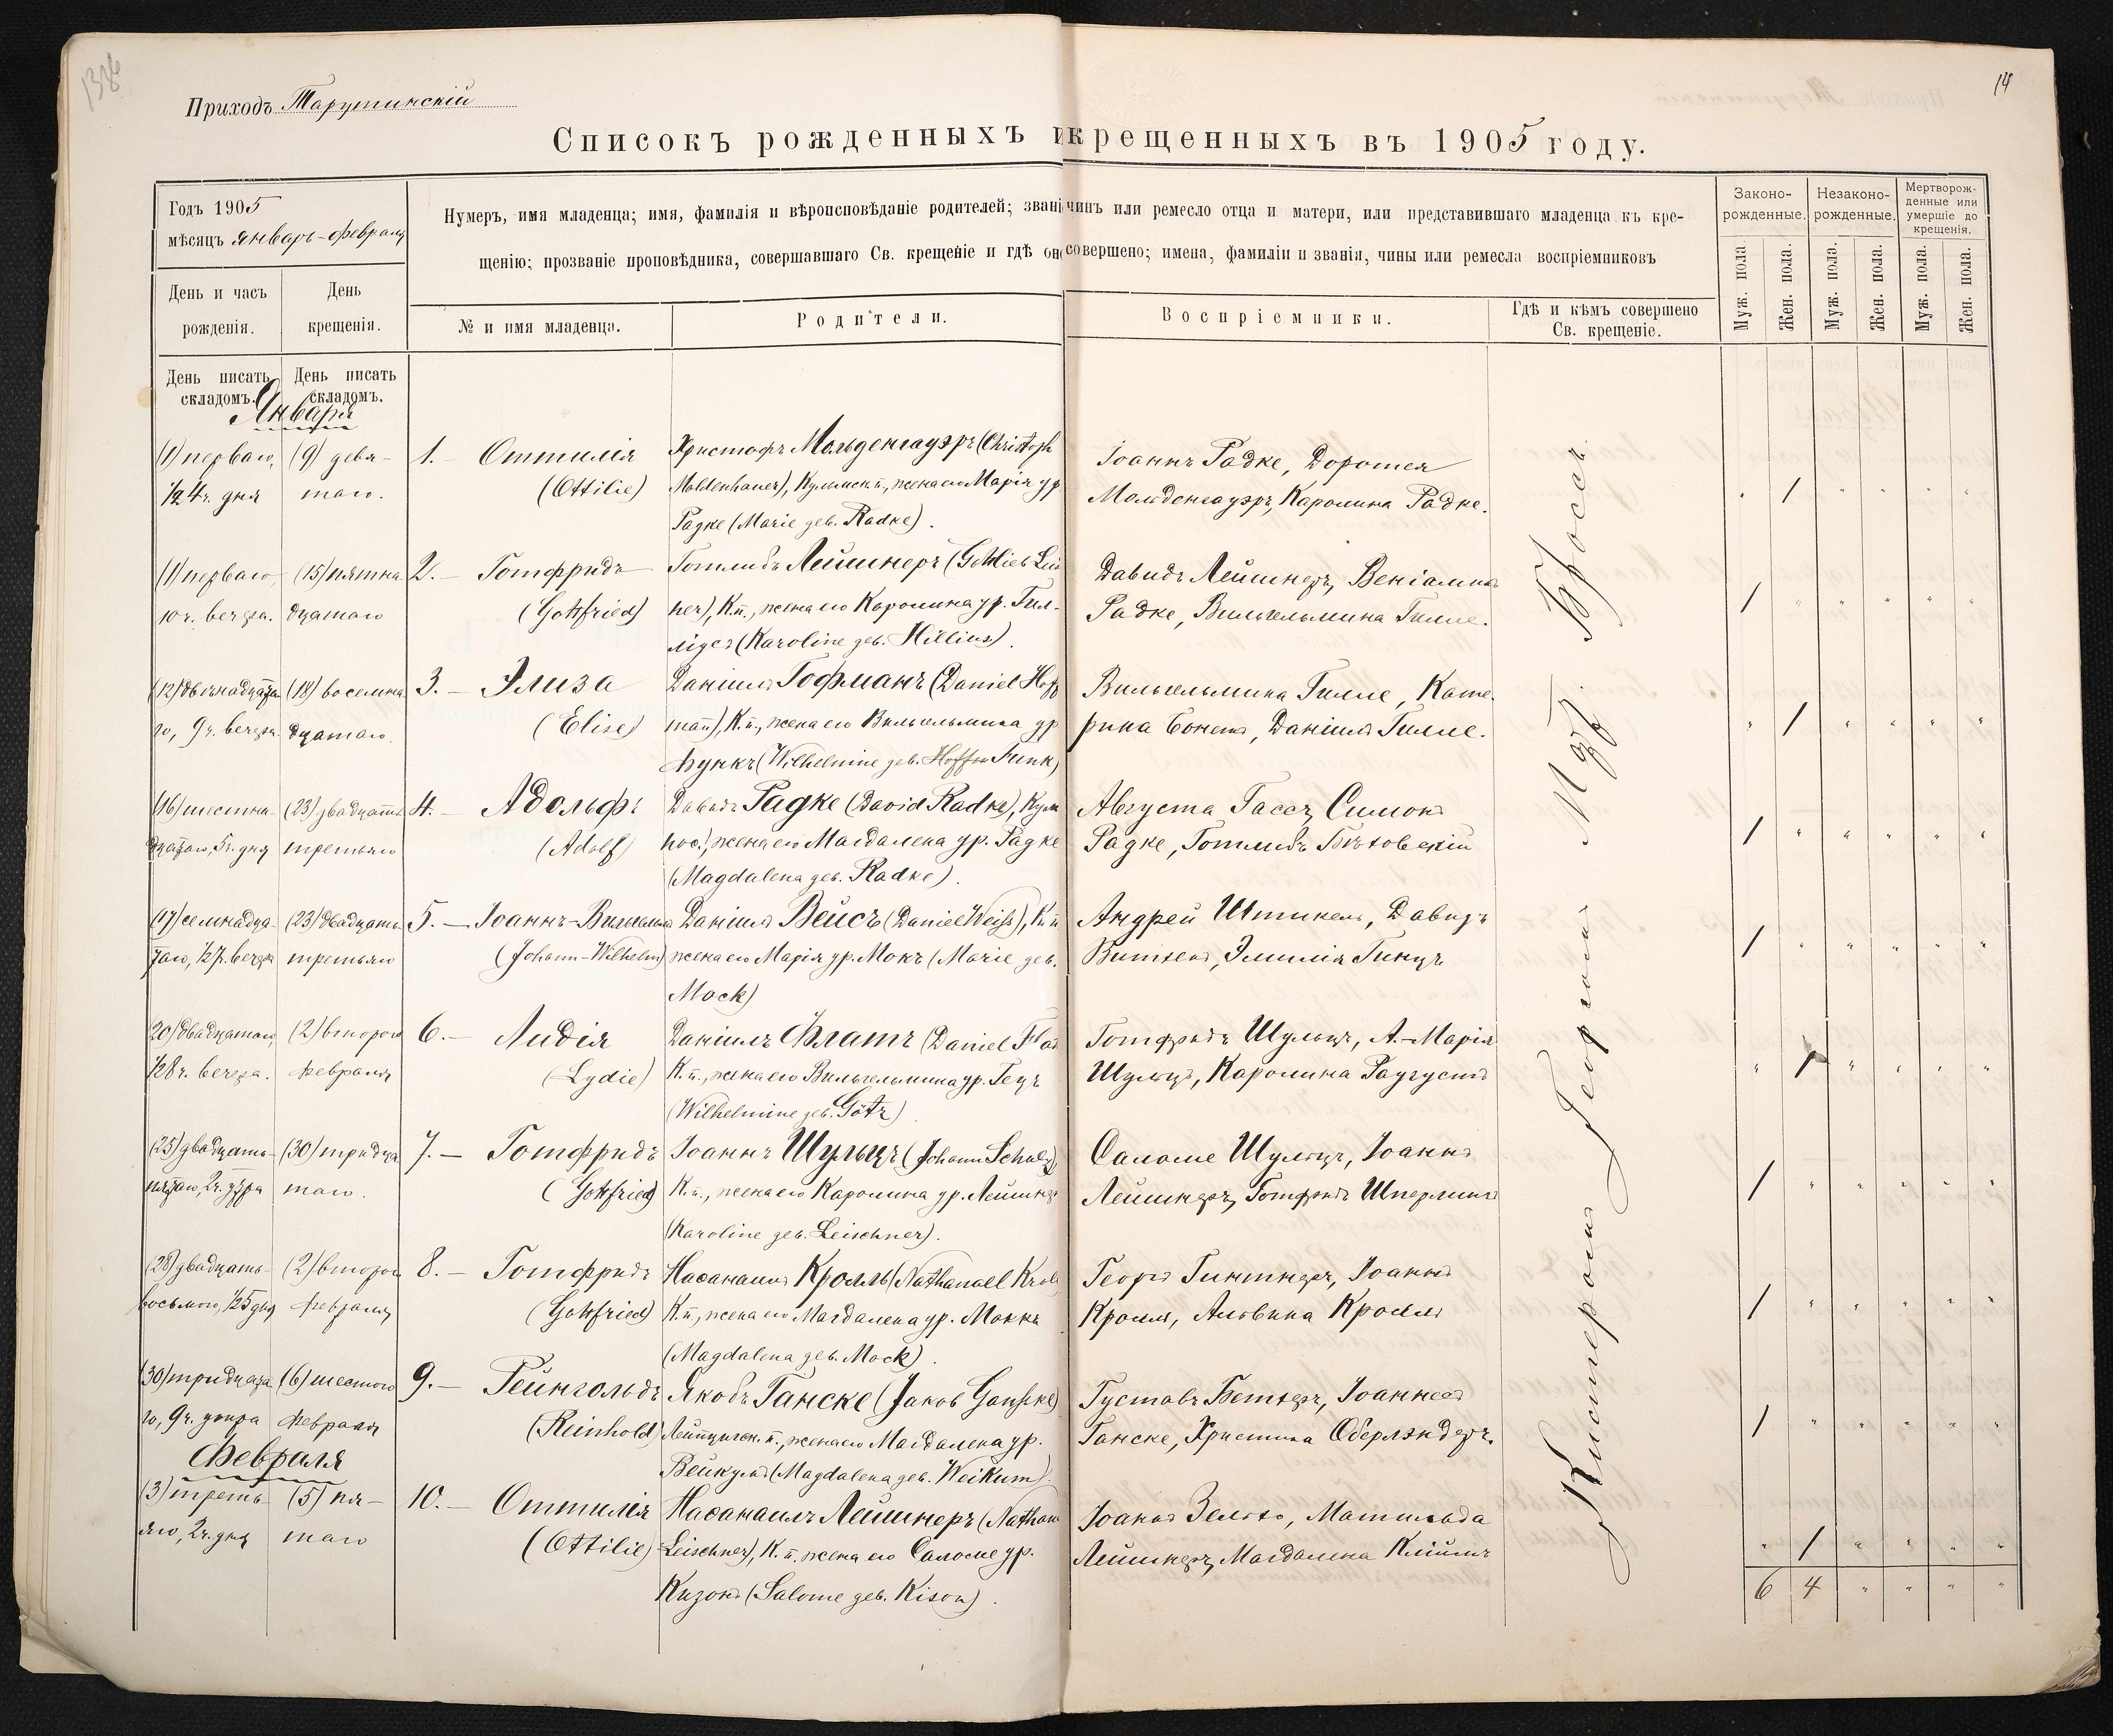 138
14
Приходъ Тарутинскій
Списокъ рожденныхъ и крещенныхъ въ 1905 году.
Годъ 1905
мѣсяцъ январь-февраль
Нумеръ, имя младенца; имя, фамилія и вѣроисповѣданіе родителей; звані чинъ или ремесло отца и матери, или представившаго младенца къ кре-
щенію; прозваніе проповѣдника, совершавшаго Св. крещеніе и гдѣ он совершено; имена, фамиліи и званія, чины или ремесла воспріемниковъ
Законо-рожденные.
Незаконо-рожденные.
Мертворож-денные или умершіе до крещенія.
Муж. пола. Жен. пола. Муж. пола. Жен. пола. Муж. пола. Жен. пола.
День и часъ рожденія.
День крещенія.
№ и имя младенца.
Родители.
Воспріемники.
Гдѣ и кѣмъ совершено Св. крещеніе.
День писать складомъ.
День писать складомъ.
Января
(1) перваго, (9) девя- 1. – Оттилія Христофъ Мольденгауэръ (Christoph Іоаннъ Радке, Доротея
1/2 4 ч. дня таго. (Ottilie) Moldenhauer), Кульмск. п., жена его Марія ур. Мольденгауэръ, Каролина Радке. 1
Радке (Marie geb. Radke).
(1) перваго, (15) пятна- 2. – Готфридъ Готлибъ Лейшнеръ (Gottlieb Leis Давидъ Лейшнеръ, Веніаминъ
10 ч. вечера. дцатаго (Gottfried) ner), К. п., жена его Каролина ур. Гил- Радке, Вильгельмина Гилле. 1
ліусъ (Karoline geb. Hillius).
(12) двѣнадцата (18) восемна 3. – Элиза Даніилъ Гофманъ (Daniel Hoff Вильгельмина Гилле, Кате-
го, 9 ч. вечера. дцатаго. (Elise) mañ), К. п., жена его Вильгельмина ур. рина Бонетъ, Даніилъ Гилле. 1
Функъ (Wilhelmine geb. Funk)
(16) шестна- (23) двадцать 4. – Адольфъ Давидъ Радке (David Radke), Кульм Августа Гассъ, Симонъ
дцатаго, 5 ч. дня третьяго (Adolf) пос., жена его Магдалена ур. Радке Радке, Готлибъ 1
(Magdalena geb. Radke).
(17) семнадца- (23) двадцать 5. – Іоаннъ-Вильгельмъ Даніилъ Вейсъ (Daniel Weiß), К. п. Андрей Штикель, Давидъ
таго, 1/2 7 ч. вечера третьяго (Johann-Wilhelm) жена его Марія ур. Мокъ (Marie geb. Эмилія Гинцъ 1
Mock)
20) двадцатаго, (2) второго 6. – Лидія Даніилъ Флатъ (Daniel Flad Готфридъ Шульцъ, А.-Марія
1/2 8 ч. вечера. февраля (Lydie) К. п., жена его Вильгельмина ур. Гецъ Шульцъ, Каролина 1
(Wilhelmine geb. Götz)
(25) двадцать- (30) тридца 7. – Готфридъ Іоаннъ Шульцъ (Johann Schulz) Саломе Шульцъ, Іоаннъ
пятаго, 2 ч. утра таго. (Gottfried) К. п., жена его Каролина ур. Лейшнеръ Лейшнеръ, Готфридъ Шперлингъ 1
(Karoline geb. Leischner).
(28) двадцать- (2) второго 8. – Готфридъ Наѳанаилъ Кролль (Nathanael Krol Георгъ Гинтнеръ, Іоаннъ
восьмого, 1/2 5 дня февраля (Gottfried) К. п., жена его Магдалена ур. Моккъ Кролль, Альвина Кролль 1
(Magdalena geb. Mock).
(30) тридцата (6) шестого 9. – Рейнгольдъ Якобъ Ганске (Jakob Ganske) Густавъ Іоаннесъ
го, 9 ч. утра февраля (Reinhold) Лейпцигск. п., жена его Магдалена ур. Ганске, Христина Оберлэндеръ. 1
Вейкумъ (Magdalena geb. Weikum).
Февраля
(3) треть- (5) пя- 10. – Оттилія Наѳанаилъ Лейшнеръ (Nathan Іоаннъ Зельтъ, Матильда
яго, 2 ч. дня таго (Ottilie) Leischner), К. п. жена его Саломе ур. Лейшнеръ, Магдалена 1
Кизонъ (Salome geb. Kison).
6 4
Кистеромъ Георгомъ